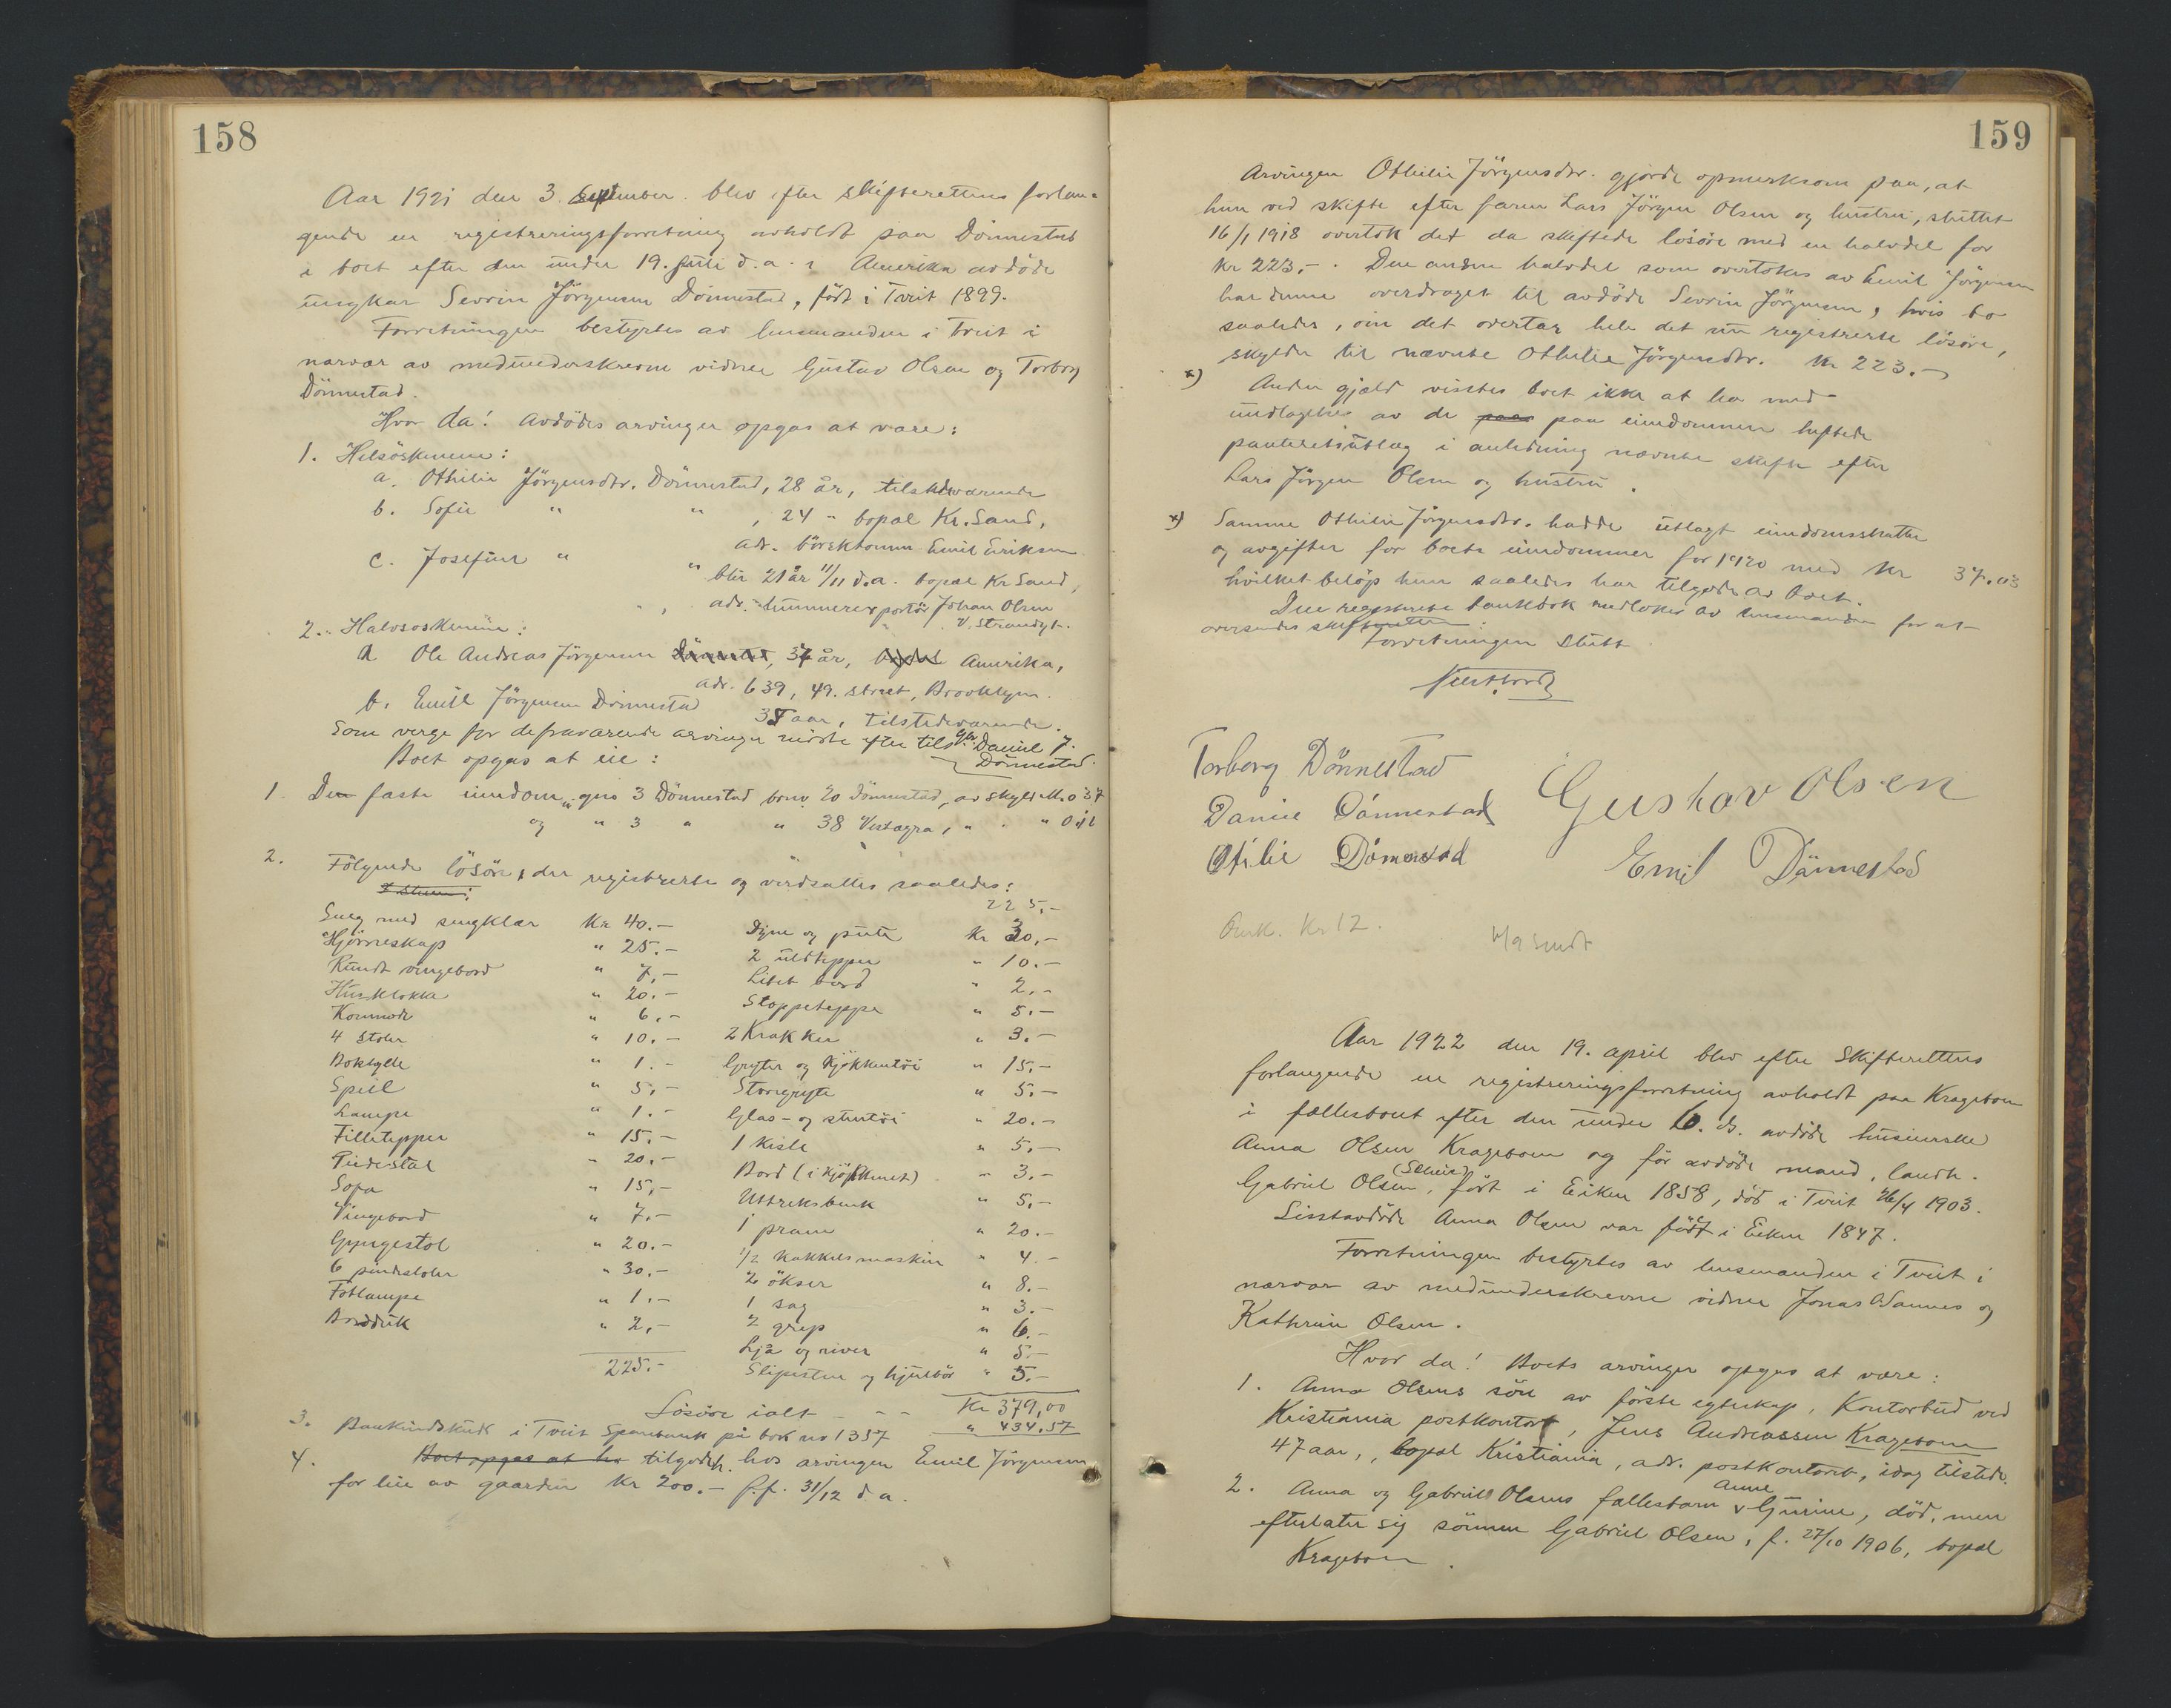 158
Aar 1921 den 3. September blev efter skifterettens forlan-
gende en registreringsforretning avholdt paa Dönnestad
i boet efter den under 19. juli d.a. i Amerika avdöde
ungkar Severin Jörgensen Dönnestad, född i Tveit 1899.
Forretningen bestyrtes av lensmanden i Tveit i
nærvær av medunderskrevne vidner Gustav Olsen og Torborg
Dönnestad.
Hvor da! Avdödes arvinger opgas at være:
1. Helsöskenene:
a. Othilie Jörgensdtr. Dönnestad, 28 år, tilstedeværende
b. Sofie " " , 24 " bopæl Kr.Sand,
adr. Emil Eriksen
c. Josefine " " blir 21 år 11/11 d.a. bopæl Kr Sand,
adr. Johan Olsen
V. Strandgt.
2. Halvsöskenene:
a Ole Andreas Jörgensen Dönnestad, 37 år, bopæl Amerika,
adr. 639, 49. street, Brooklyn.
b. Emil Jörgensen Dönnestad 35 aar, tilstedeværende.
Som verge for defraværende arvinger mötte efter tils. gbr. Daniel J.
Dönnestad.
Boet opgas at eie:
1. Den faste eiendom, gno 3 Dönnestad bno 20 Dönnestad, av skyld M. 0 37
og " 3 " " 38 Vestagra, " " " 0
2. Fölgende lösöre, der registrertes og værdsattes saaledes:
225,-
Seng med sengklær Kr 40.- Dyne og pute Kr 30,-
Hjörneskap " 25.- 2 uldtepper " 10.-
Rundt vingebord " 7,- Litet bord " 2.-
Husklokka " 20.- Stoppeteppe " 5.-
Kommode " 6,- 2 Krakker " 3.-
4 Stoler " 10.- Gryter og Kjökkentöi " 15.-
Bokhylle " 1.- Storegryte " 5.-
Speil " 5,- Glas- og stentöi " 20.-
Lampe " 1.- 1 kiste " 5,-
Filletepper " 15.- Bord (i kjökkenet) " 3.-
Piedestal " 20,- Uttræksbenk " 5,-
Sofa " 15,- 1 pram " 20.-
Vingebord " 7.- 1/2 hakkelsmaskin " 4.-
Gyngestol " 20.- 2 ökser " 8.-
6 pindestoler " 30.- 1 sag " 3.-
Fotlampe " 1.- 2 grep " 6.-
Bordduk " 2,- Ljå og river " 5.-
225.- Slipesten og hjulbör " 5.-
Lösöre ialt - - - Kr 379,00
3. Bankindskud i Tveit Sparebank på bok no 1357 " 434.57
4. Boet opgas at ha tilgode h. hos arvingen Emil Jörgensen
for leie av gaarden Kr 200.- p.f. 31/12 d.a.
159
Arvingen Othilie Jörgensdtr. gjorde opmerksom paa, at
hun ved skifte efter faren Lars Jörgen Olsen og hustru, sluttet
16/1 1918 overtok det da skiftede lösöre med en halvdel for
Kr 223,-. Den anden halvdel som overtokes av Emil Jörgensen
har denne overdraget til avdöde Severin Jörgensen, hvis bo
saaledes, om det overtar hele det nu registrerte lösöre,
skylder til nævnte Othilie Jörgensdtr. Kr 223.-
x) Anden gjæld visstes boet ikke at ha med
undtagelse av de paa eiendommen heftede
panteretsutlæg i anledning nævnte skifte efter
Lars Jörgen Olsen og hustru.
x) Samme Othilie Jörgensdtr. hadde utlagt eiendomsskatter
og avgifter for boets eiendommer for 1920 med Kr 37.03
hvilket belöp hun saaledes har tilgode av boet.
Den registrerte bankbok medtokes av lensmanden for at
oversendes skifteretten.
Forretningen slutt
Torborg Dönnestad
Daniel Dönnestad
Otilie Dönnestad
Gustav Olsen
Emil Dönnestad
Omk. Kr 12.
Aar 1922 den 19. april blev efter Skifterettens
forlangende en registreringsforretning avholdt paa Krageboen
i fællesboet efter den under 6. ds. avdöde huseierske
Anna Olsen Krageboen og för avdöde mand, landh.
Gabriel Olsen, född i Eiken 1858, död i Tveit 26/4 1903.
Sisstavdöde Anna Olsen var född i Eiken 1847.
Forretningen bestyrtes av lensmanden i Tveit i
nærvær av medunderskrevne vidner Jonas og
Kathrine Olsen.
Hvor da! Boets arvinger opgas at være:
1. Anna Olsens sön av förste egteskap, Kontorbud ved
Kristiania postkontor, Jens Andreassen Krageboen
47 aar, bopæl Kristiania, adr. postkontoret, idag tilstede.
2. Anna og Gabriel Olsens fællesbarn Anne Gurine, död, men
efterlater sig sönnen Gabriel Olsen, f. 27/10 1906, bopæl
Krageboen.